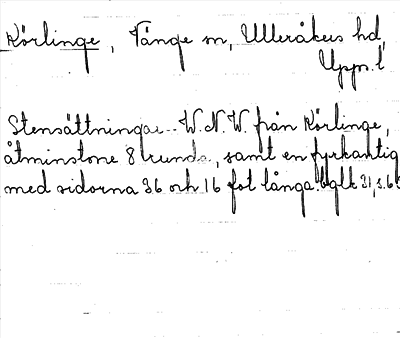 Körlinge, Vänge sn, Ulleråkers hd,
Upps. l.
Stensättningar W.N.W. från Körlinge,
åtminstone 8 runda, samt en fyrkantig
med sidorna 36 och 16 fot långa. Uglk 31, s. 6